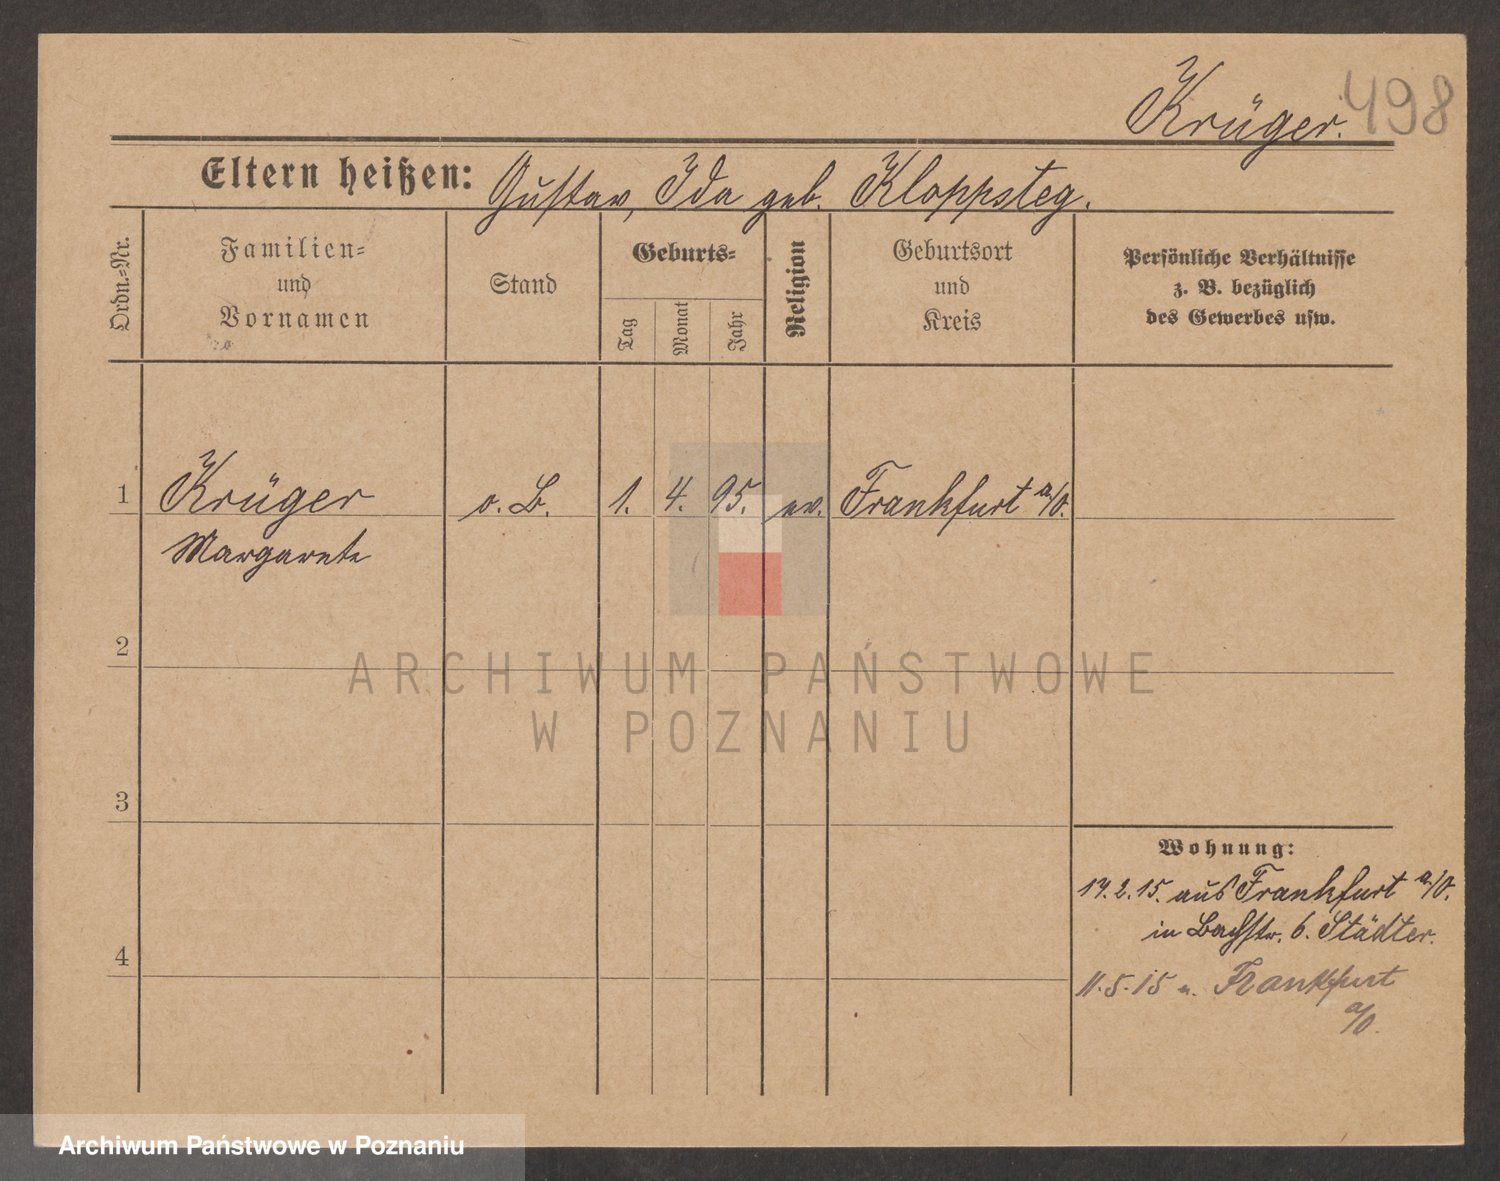 Krüger. 498
Eltern heißen: Gustav, Ida geb. Kloppsteg.
Ordn.-Nr.
Familien-
und
Vornamen
Stand
Geburts-
Tag
Monat
Jahr
Religion
Geburtsort
und
Kreis
Persönliche Verhältnisse
z. B. bezüglich
des Gewerbes usw.
1 Krüger o. B. 1. 4. 95. ev. Frankfurt a/O.
Margarete
2
ARCHIWUM PAŃSTWOWE
W POZNANIU
3
Wohnung:
17.2.15. aus Frankfurt a/O.
in Bachstr. 6. Städter.
4
11.5.15 n. Frankfurt
a/O.
Archiwum Państwowe w Poznaniu